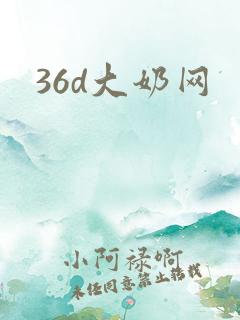 36d大奶网
小阿禄啊
未经同意禁止转载